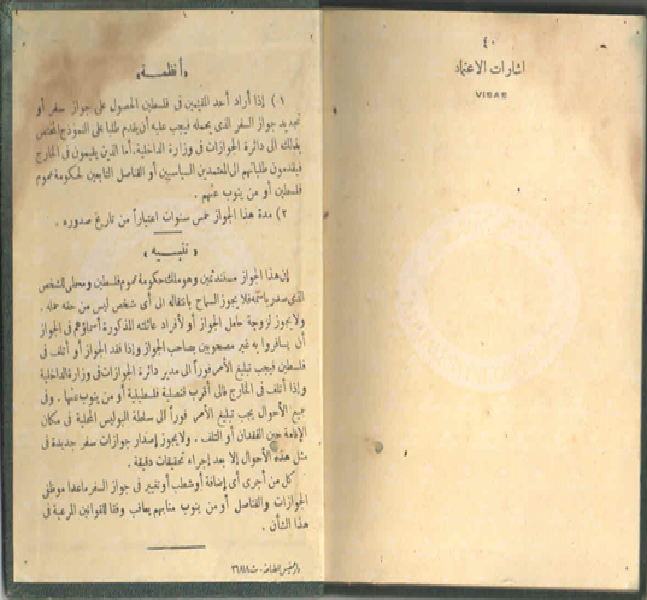 ٤٠
اشارات الاعتماد
VISAS
«أنظمة»
١) إذا أراد أحد المقيمين فى فلسطين الحصول على جواز سفر أو
تجديد جواز السفر الذى يحمله فيجب عليه أن يقدم طلبا على النموذج المختص
بذلك الى دائرة الجوازات فى وزارة الداخلية. أما الذين يقيمون فى الخارج
فيقدمون طلباتهم الى المعتمدين السياسيين أو القناصل التابعين لحكومة عموم
فلسطين أو من ينوب عنهم .
٢) مدة هذا الجواز خمس سنوات اعتباراً من تاريخ صدوره .
«تنبيه»
إن هذا الجواز مستند ثمين وهو ملك حكومة عموم فلسطين ومعطى للشخص
الذى سفر باسمه فلا يجوز السماح بانتقاله الى أى شخص ليس من حقه حمله .
ولا يجوز لزوجة حامل الجواز أو لأفراد عائلته المذكورة أسماؤهم فى الجواز
أن يسافروا به غير مصحوبين بصاحب الجواز وإذا فقد الجواز أو أتلف فى
فلسطين فيجب تبليغ الأمر فوراً الى مدير دائرة الجوازات فى وزارة الداخلية
وإذا أتلف فى الخارج فالى أقرب قنصلية فلسطينية أو من ينوب عنها . وفى
جميع الأحوال يجب تبليغ الأمر فوراً الى سلطة البوليس المحلية فى مكان
الإقامة حين الفقدان أو التلف . ولا يجوز إصدار جوازات سفر جديدة فى
مثل هذه الأحوال إلا بعد إجراء تحقيقات دقيقة .
كل من أجرى أى إضافة أو شطب أو تغيير فى جواز السفر ماعدا موظفى
الجوازات والقناصل أو من ينوب منابهم يعاقب وفقا للقوانين المرعية فى
هذا الشأن .